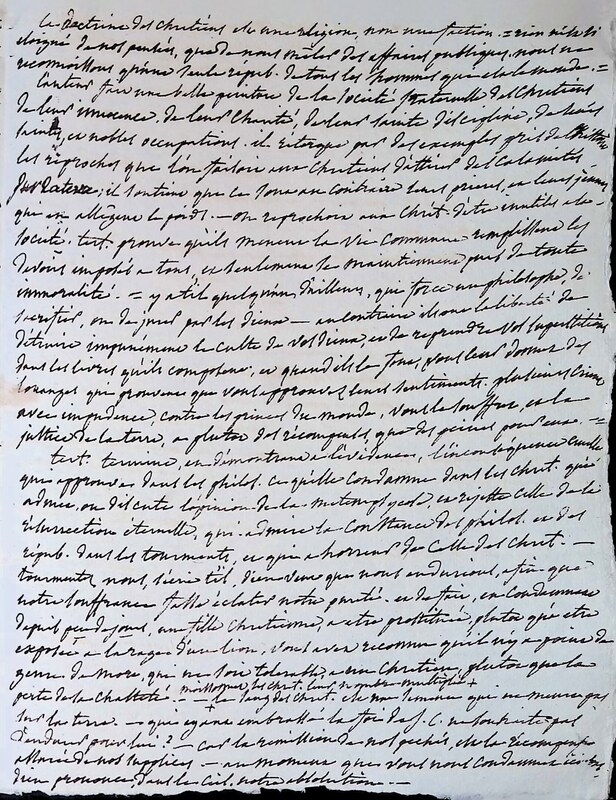 la doctrine des chrétiens est une religion, non une faction. = rien n'est si
éloigné de nos pensées, que de nous mêler des affaires publiques. nous ne
reconnoissons qu'une seule répub. de tous les hommes qui est le monde. =
l'auteur fait une belle peinture de la société fraternelle des chrétiens
de leur innocence. de leur charité, de leur sainte discipline, de leurs
saintes et nobles occupations. il rétorque par des exemples pris de
les reproches que l'on faisoit aux chrétiens d'attirer des calamités
sur la terre; il soutient que ce sont au contraire leurs prieres, et leurs jeunes
qui en allègent le poids. — on reprochoit aux chrét. d'être inutiles a la
société. tert. prouve qu'ils menent la vie commune remplissent les
devoirs imposés a tous, et seulement se maintiennent purs de toute
immoralité. = y a t'il quelqu'un d'ailleurs, qui force un philosophe, de
sacrifier, ou de jurer par les dieux — au contraire ils ont la liberté de
détruire impunément le culte de vos dieux, et de reprendre vos superstitions
dans les livres qu'ils composent, et quand ils le font, vous leur donnez des
louanges qui prouvent que vous approuvez leurs sentiments. plusieurs
avec impudence, contre les princes du monde, vous le souffrez, et la
justice de la terre, a plutot des recompenses, que des peines pour eux. =
tert. termine, en démontrant à l'évidence, l'inconséquence
que approuve dans les philos. ce qu'elle condamne dans les chrét. qui
admet, ou discute l'opinion de la metempsycose, et rejette celle de la
résurrection éternelle, qui admire la constance des philos. et des
répub. dans les tourments, et qui a horreur de celle des chrét. —
tourmentez nous, s'écrie t'il, dieu veut que nous endurions, afin que
notre souffrance fasse éclater notre pureté. et de fait, en condamnant
depuis peu de jours, une fille chrétienne, a etre prostituée, plutot que etre
exposée a la rage d'un lion, vous avez reconnu qu'il n'y a point de
genre de mort, qui ne soit tolerable a une chrétienne, plutot que la
perte de la chasteté. — moissonnez les chrét. leur nombre multiplie +
le sang des chrét. est une semence qui ne meurt pas
sur la terre. — qui ayant embrassé la foi de J. C. ne souhaite pas
d'endurer pour lui? — car la rémission de nos pechés, est la récompense
de nos supplices — au moment que vous nous condamnez ici
dieu prononce, dans le ciel, notre absolution. —